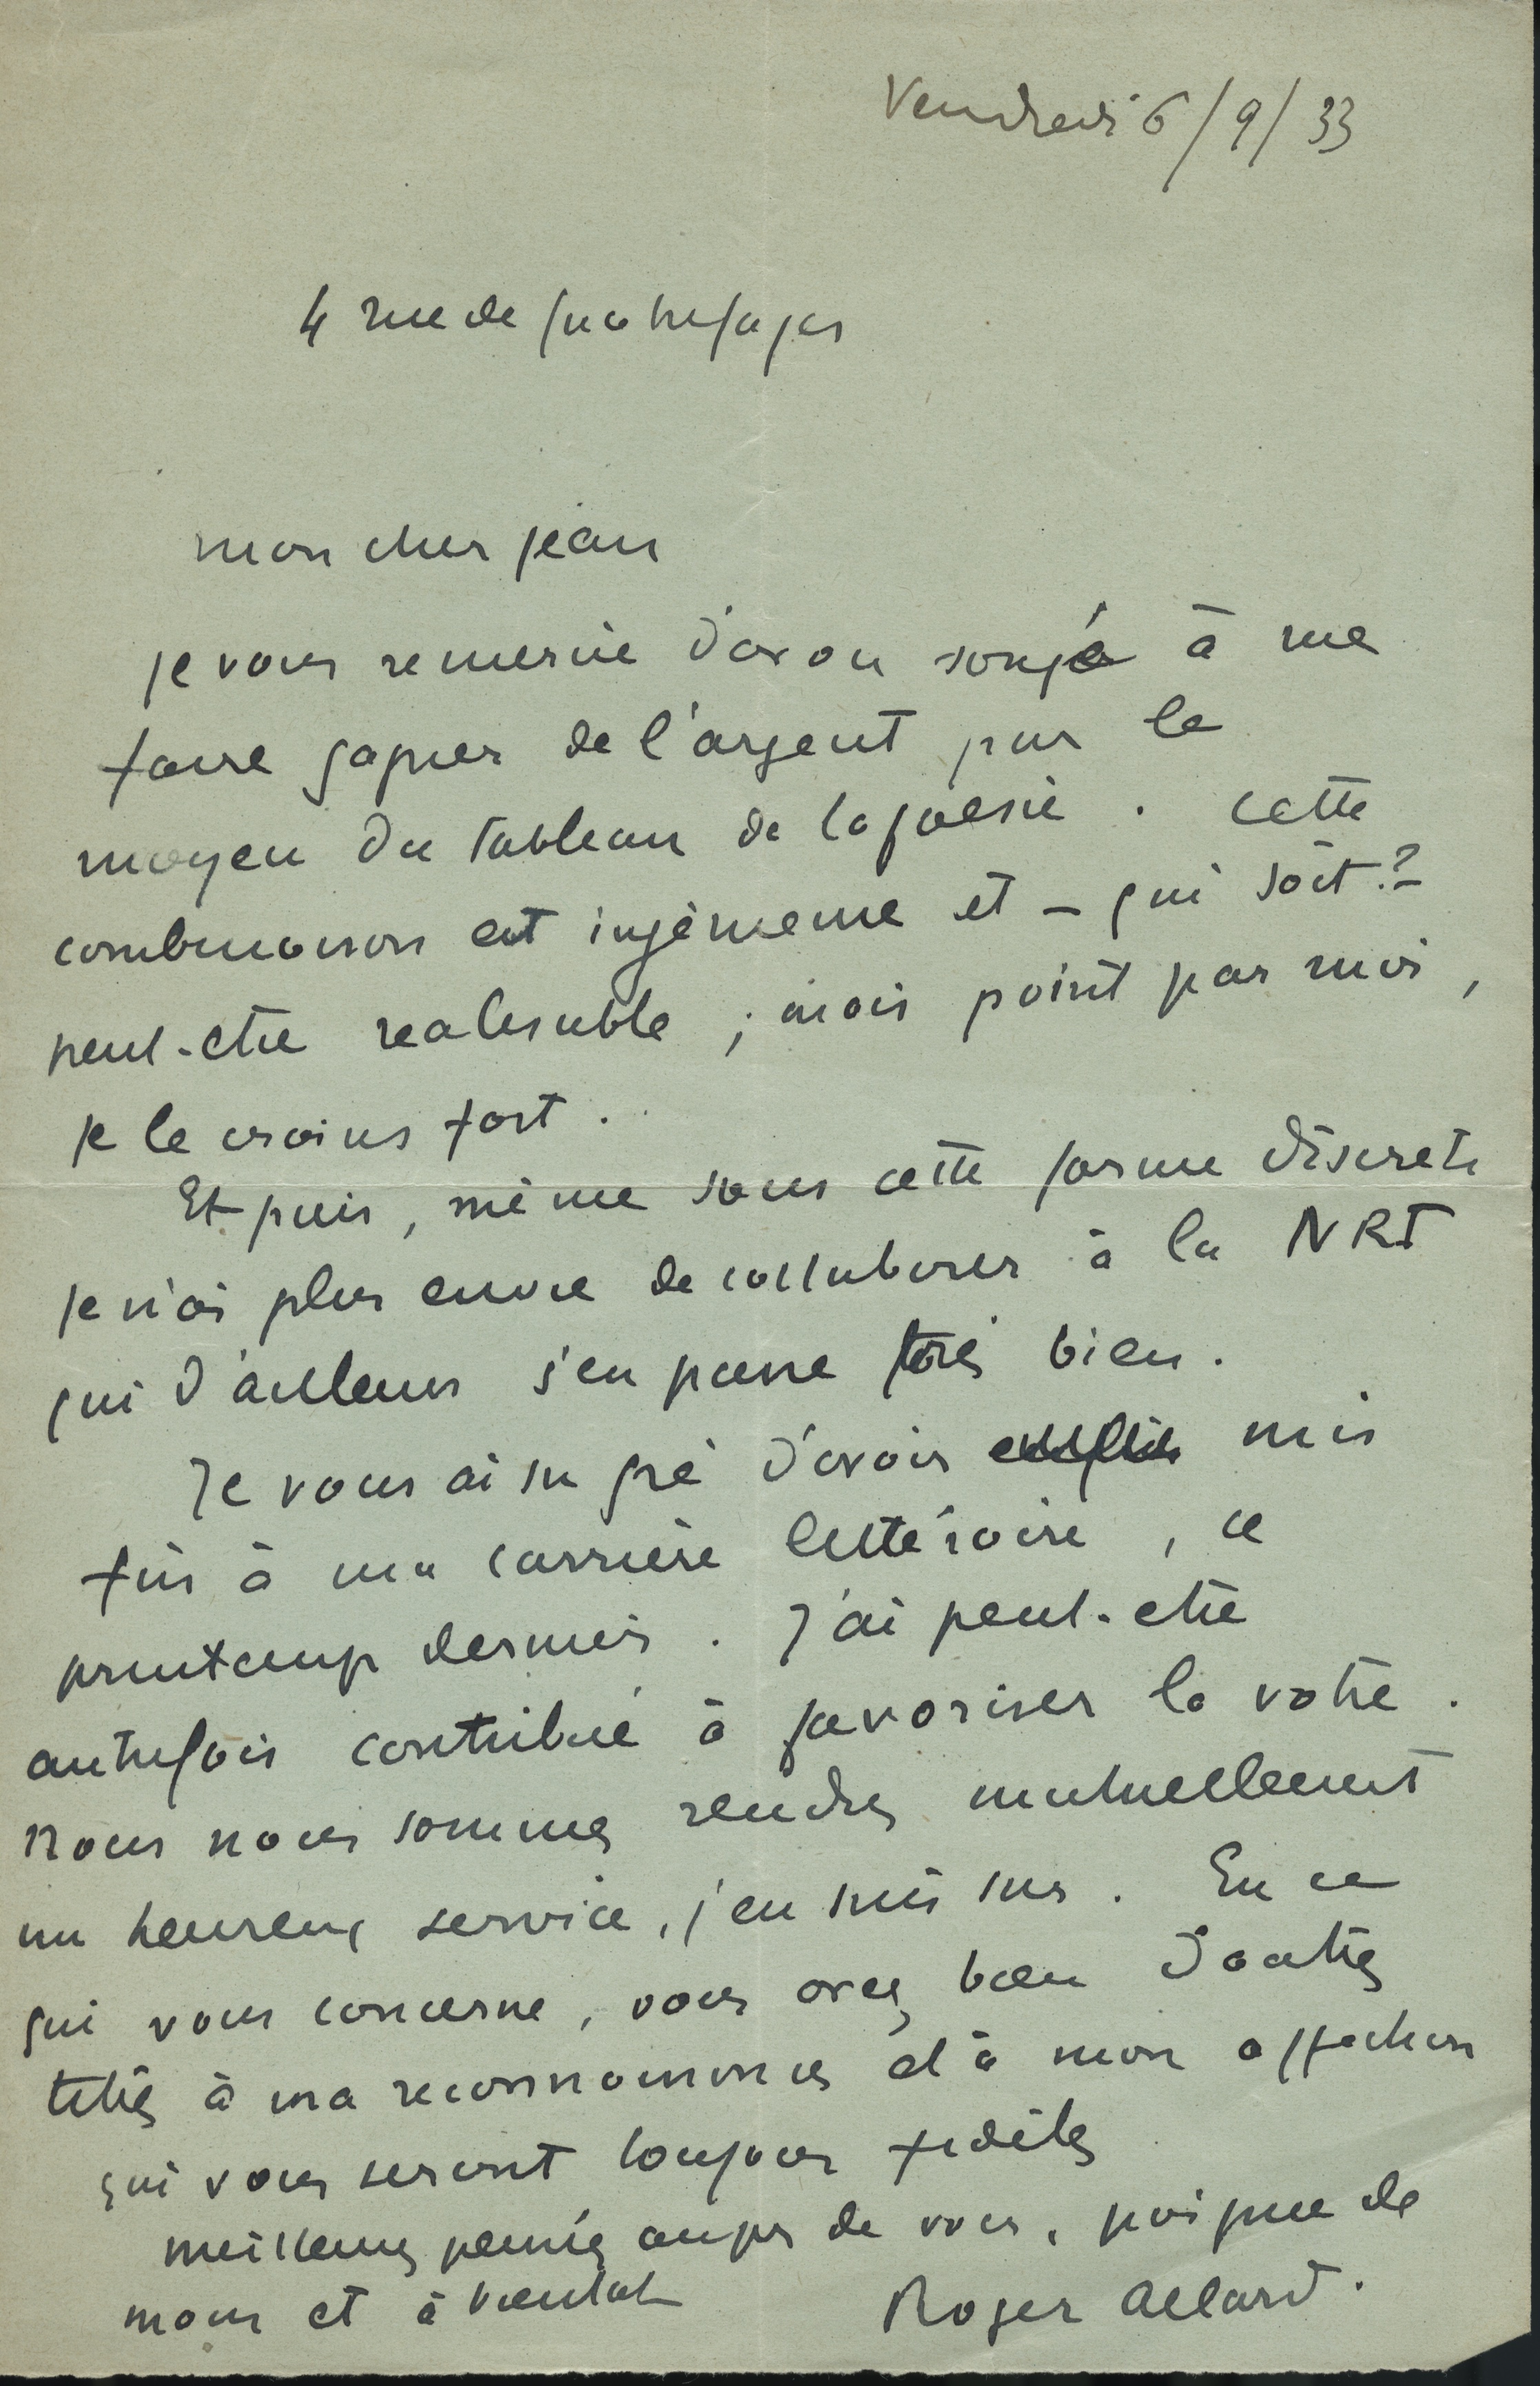 Vendredi 6/9/33
4 rue de quatrefages
mon cher jean
je vous remercie d'avoir songé à me
faire gagner de l'argent par le
moyen du tableau de la poésie . cette
combinaison est ingénieuse et – qui sait ? –
peut-etre realisable ; mais point par moi ,
je le crains fort .
Et puis , même sous cette forme discrete
je n'ai plus envie de collaborer à la NRF
qui d'ailleurs s'en passe très bien .
Je vous ai su gré d'avoir mis
fin à ma carrière littéraire , ce
printemps dernier . J'ai peut-etre
autrefois contribué à favoriser la votre .
Nous nous sommes rendus mutuellement
un heureux service , j'en suis sur . En ce
qui vous concerne , vous avez bien d'autres
titres à ma reconnaissance et à mon affection
qui vous seront toujours fidèles
meilleures pensées auprès de vous , poignee de
mains et à bientot
Roger Allard .